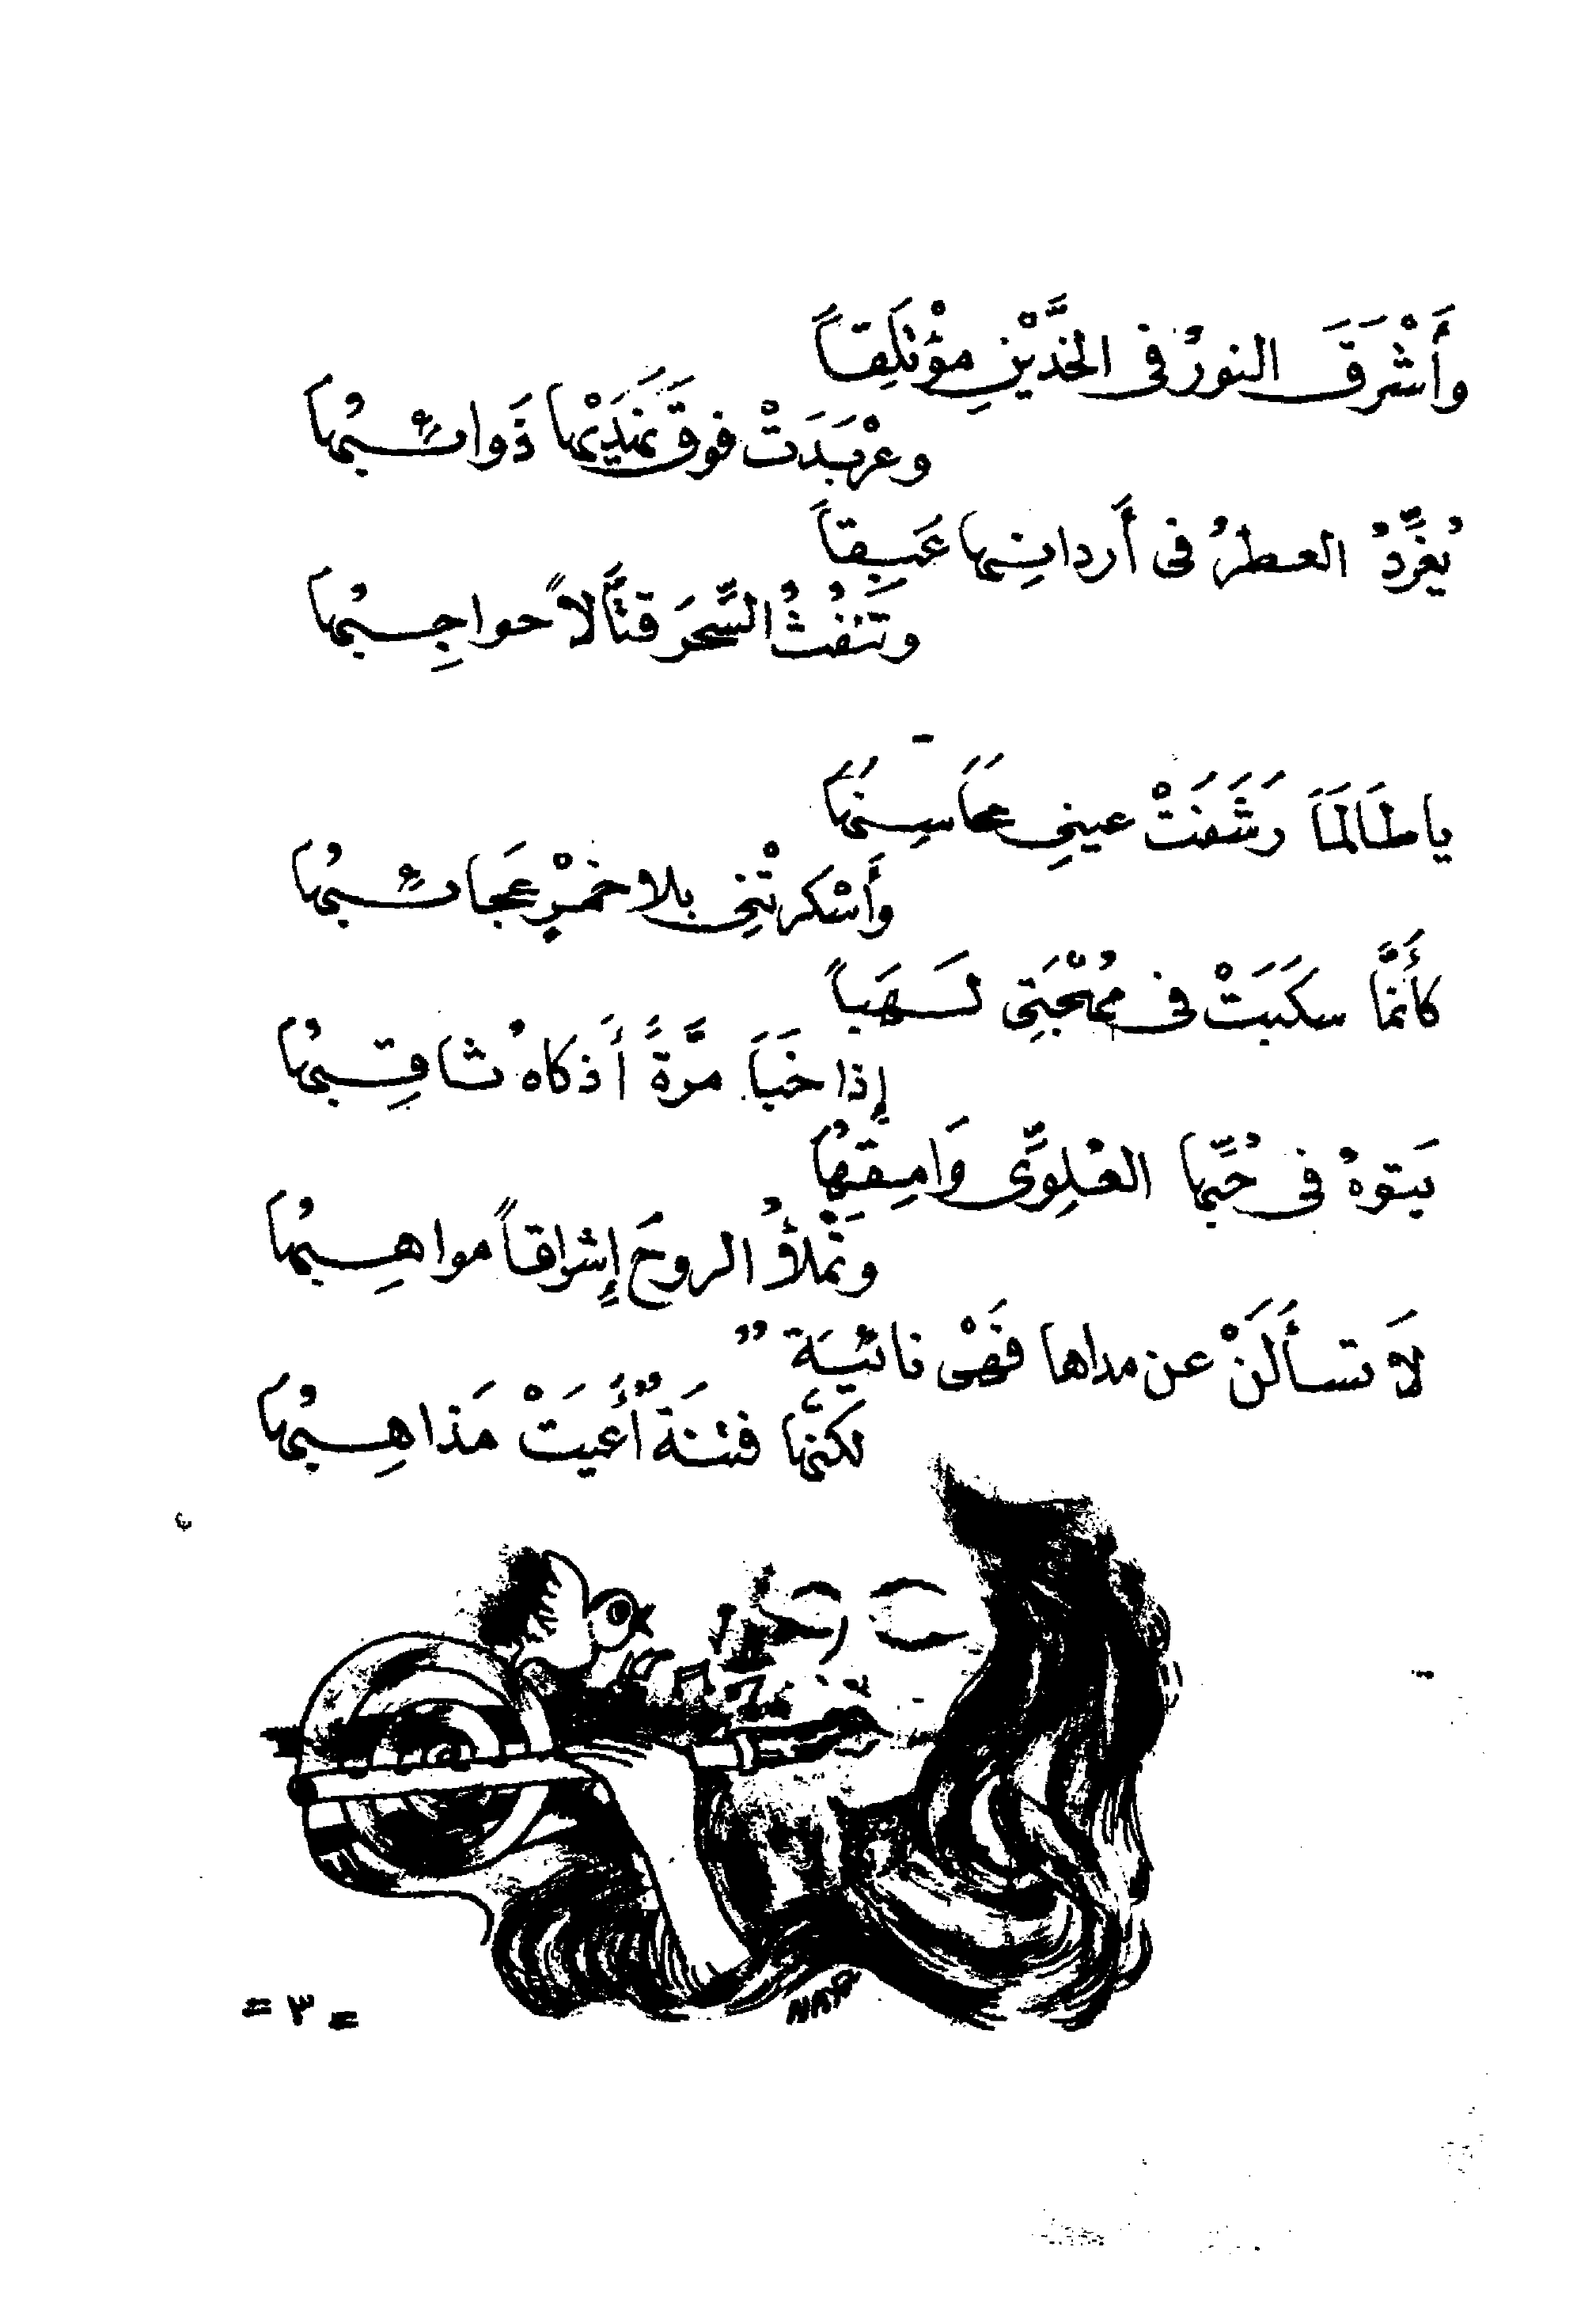 وأَشْرَقَ النورُ فى الخدَّيْنِ مؤْتَلِقاً
وعرْبَدَتْ فوقَ نَهدَيْها ذَوائِبُها
يُغرِّدُ العطرُ فى أَردانِها عَبِقاً
وتَنفُثُ السِّحرَ قتَّالاً حواجِبُها
ياطَالَمَا رَشَفَتْ عينِى محَاسِنَهَا
وأَسْكرتْنِى بلا خمْرٍ عَجائِبُها
كأَنمَّا سكَبَتْ فى مُهْجَتِى لَهَباً
إذا خَبَا مرَّةً أَذكاهُ ثاقِبُها
يَتوهُ فى حُبِّها العُلِوِّى وَامِقُهَا
وتَمْلأُ الروحَ إِشراقاً مواهِبُها
لاَ تسأَلَنْ عن مداها فَهْى نائيَة ٌ
لكنَّها فتنَةٌ أَعيَتْ مَذاهِبُها
NAR
= ٣ =